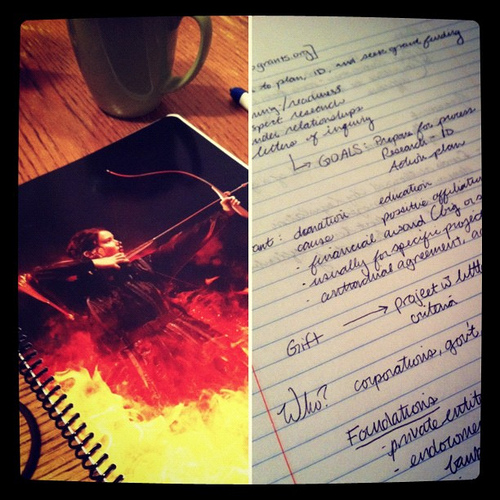 grants.org]
to plan, ID, and seek grant funding
/readiness
research
relationships
letters of inquiry
GOALS: Prepare for process
Research - ID
Action plan
donation education
cause positive affiliation
· financial award (big or s
· usually for specific project
· contractual agreement, a
Gift → project w little
criteria
Who? corporations, gov't,
Foundations
· private entit
· endowme